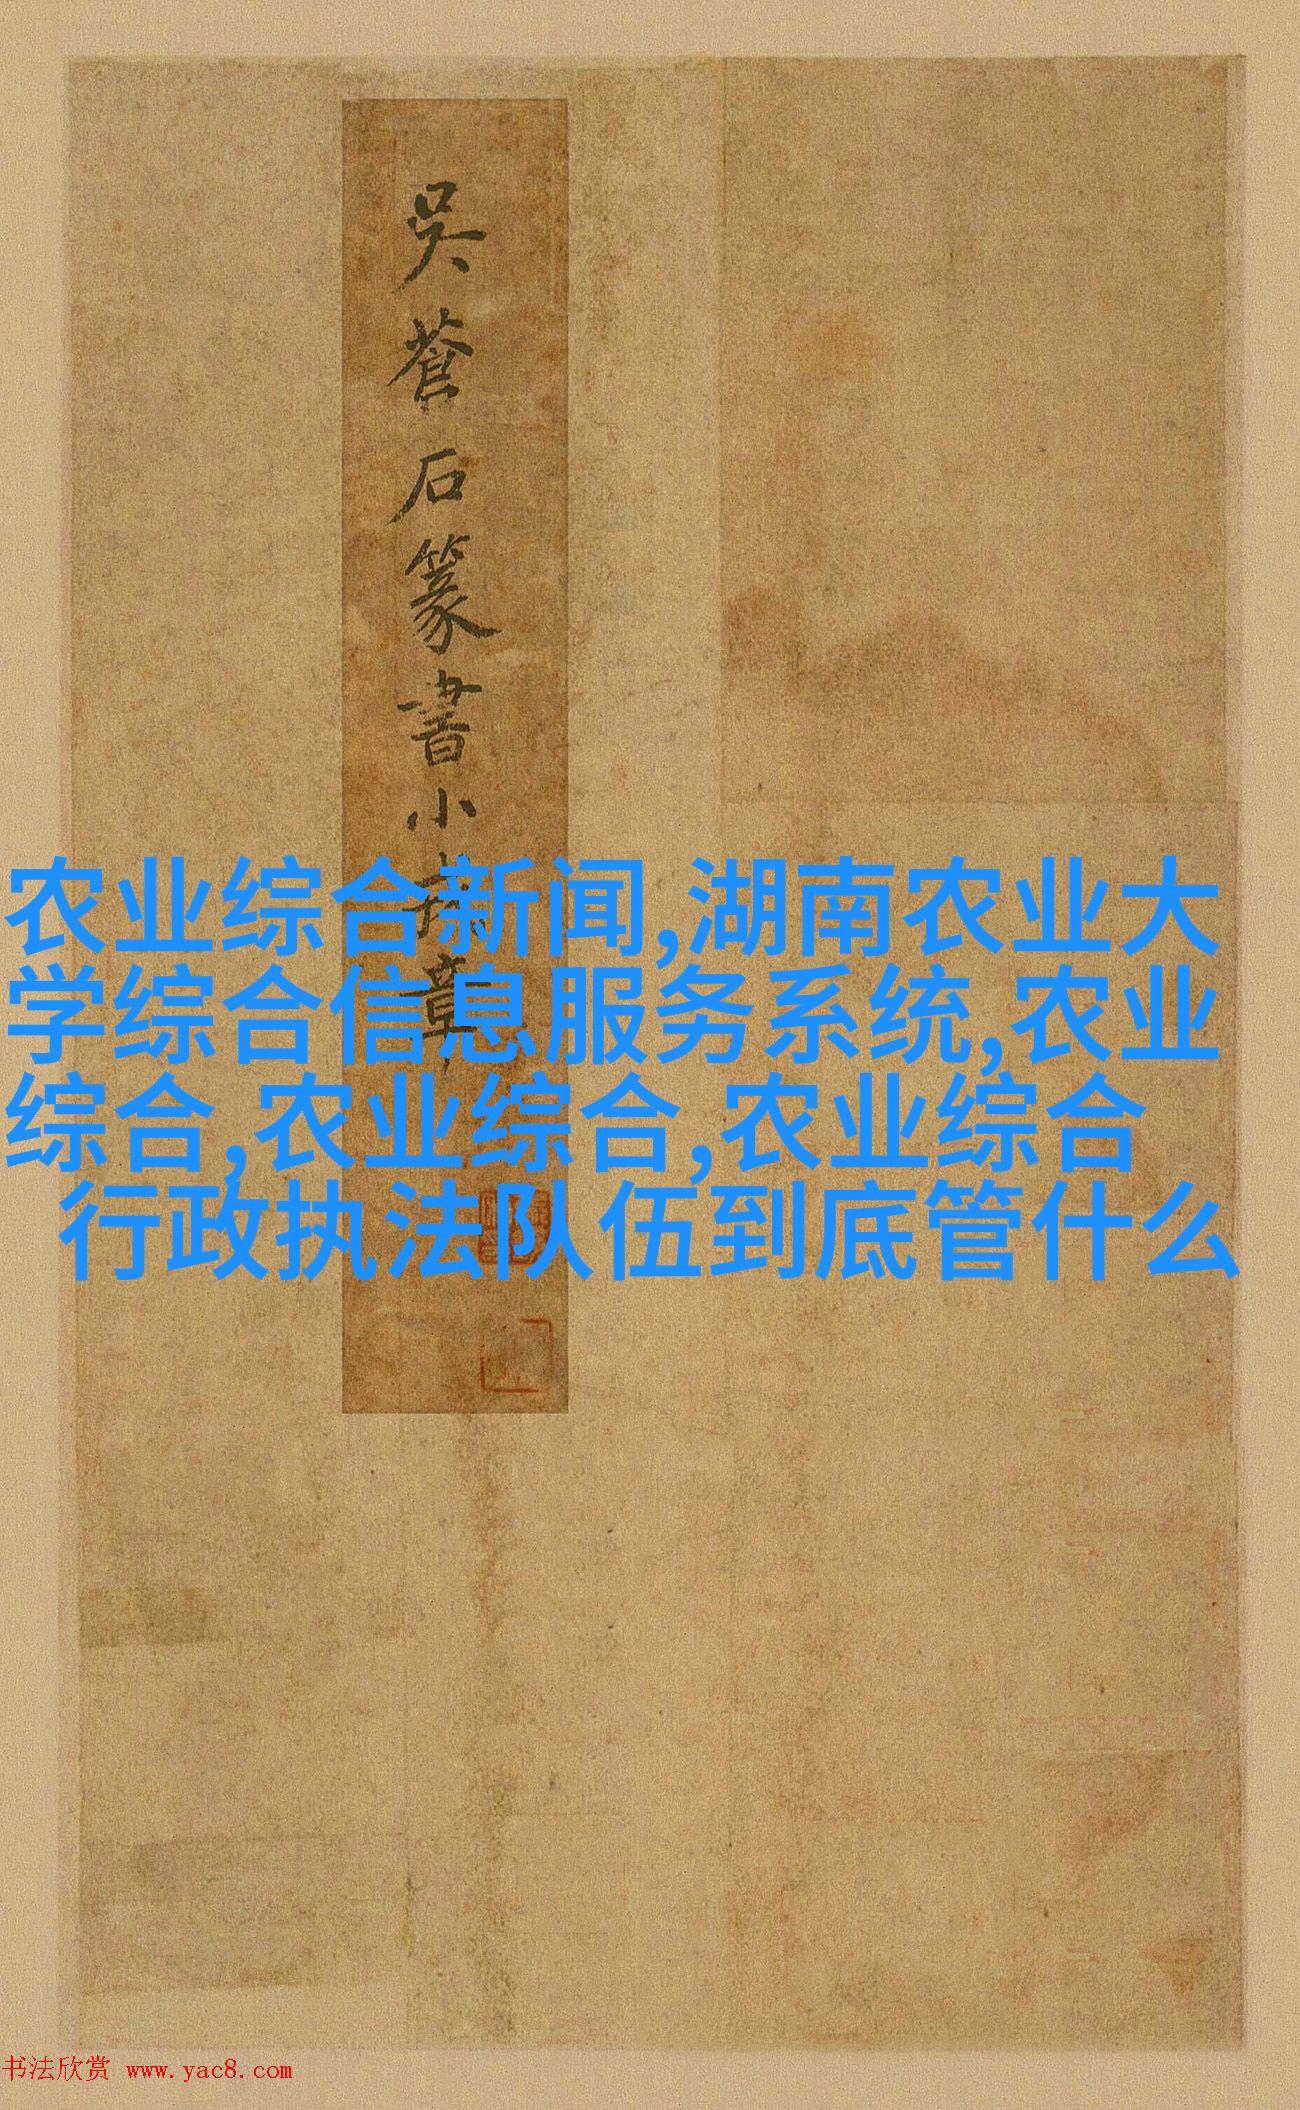 吳蒼石篆書小戎章
农业综合新闻,湖南农业大
学综合信息服务系统,农业
综合,农业综合,农业综合
行政执法队伍到底管什么
书法欣赏 www.yac8.com